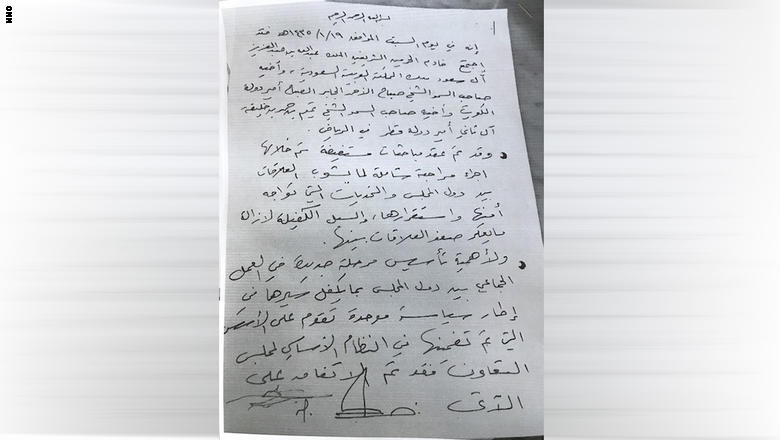 CNN
بسم الله الرحمن الرحيم
إنه في يوم السبت الموافق ١٤٣٥/١/١٩هـ فقد
اجتمع خادم الحرمين الشريفين الملك عبدالله بن عبدالعزيز
آل سعود ملك المملكة العربية السعودية، وأخيه
صاحب السمو الشيخ صباح الأحمد الجابر الصباح أمير دولة
الكويت وأخيه صاحب السمو الشيخ تميم بن حمد بن خليفة
آل ثاني أمير دولة قطر في الرياض.
وقد تم عقد مباحثات مستفيضة تم خلالها
اجراء مراجعة شاملة لما يشوب العلاقات
بين دول المجلس والتحديات التي تواجه
أمنها واستقرارها، والسبل الكفيلة لازالة
مايعكر صفو العلاقات بينها.
ولأهمية تأسيس مرحلة جديدة في العمل
الجماعي بين دول المجلس بما يكفل سيرها في
إطار سياسة موحدة تقوم على الأسس
التي تم تضمينها في النظام الأساسي لمجلس
التعاون فقد تم الاتفاق على
الآتي